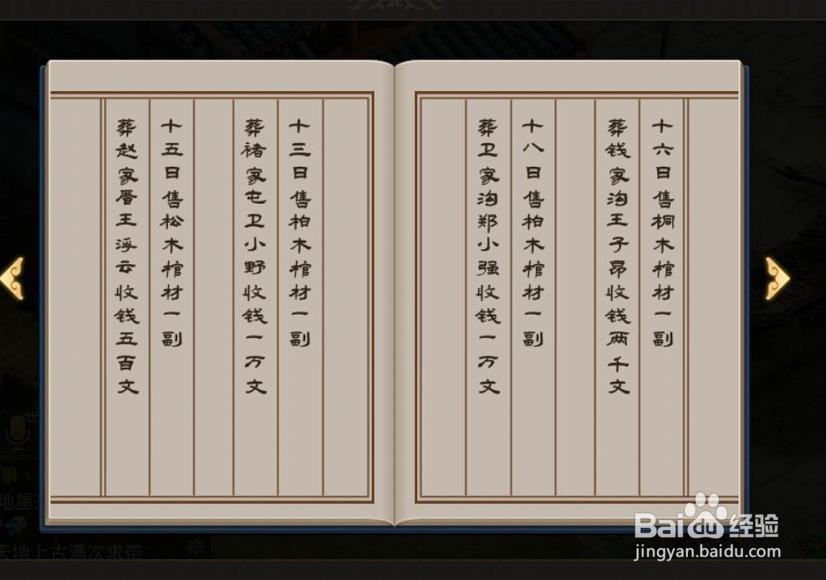 十三日售柏木棺材一副
葬褚家屯卫小野收钱一万文
十五日售松木棺材一副
葬赵家厝王浮云收钱五百文
十六日售桐木棺材一副
葬钱家沟王子昂收钱两千文
十八日售柏木棺材一副
葬卫家沟郑小强收钱一万文
Baidu经验
jingyan.baidu.com